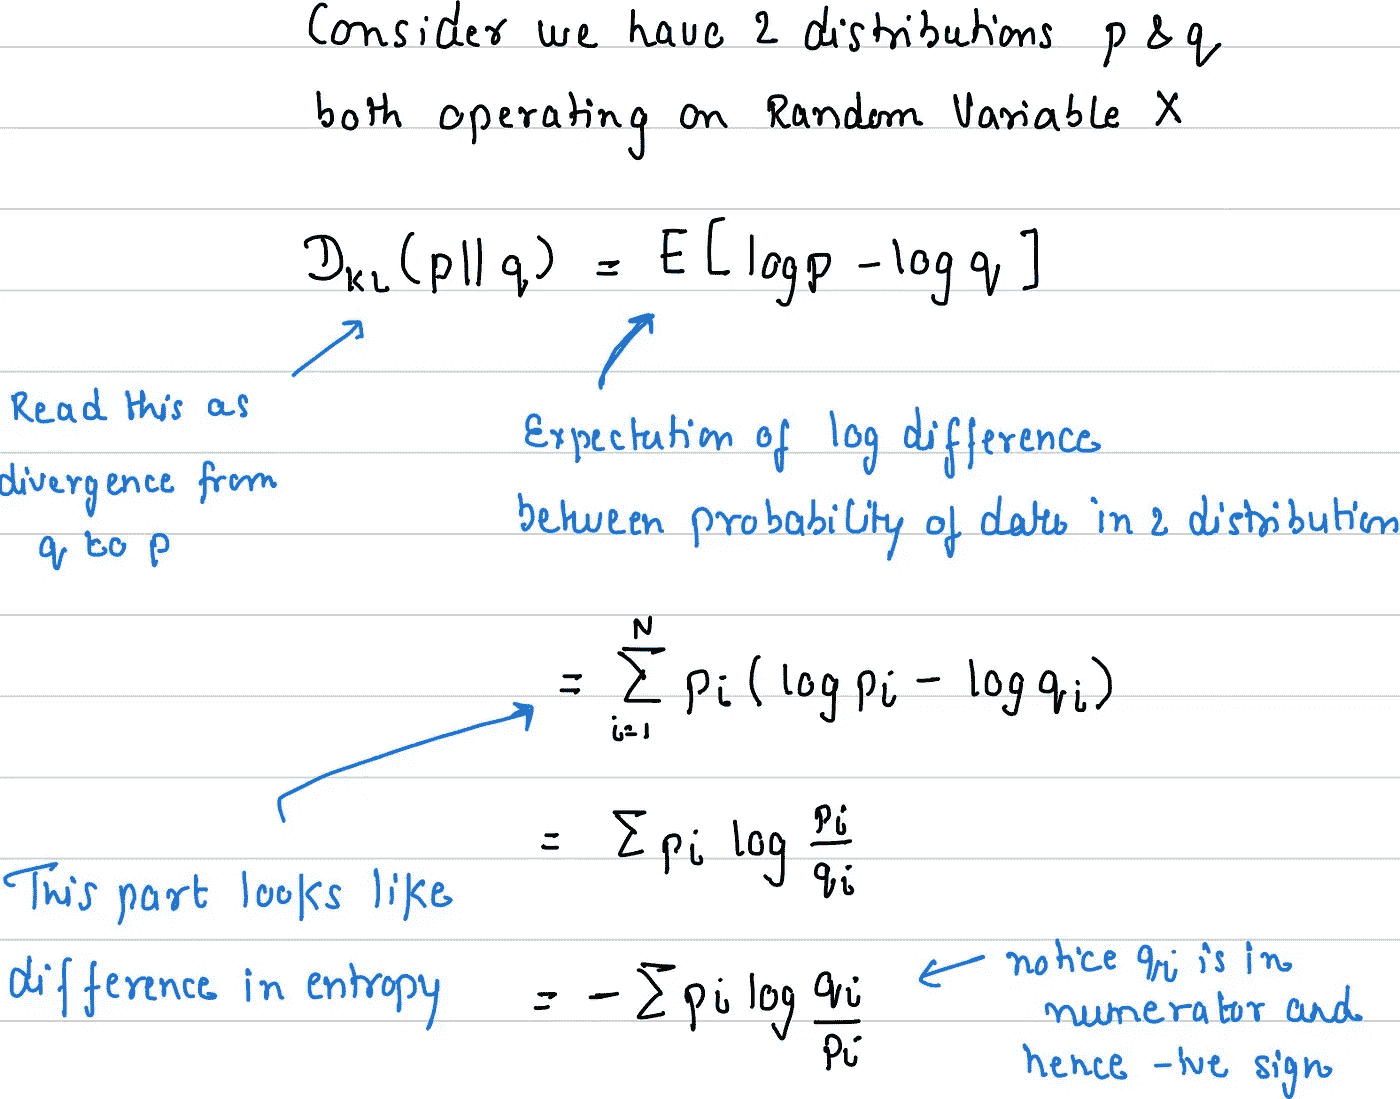 Consider we have 2 distributions p & q
both operating on Random Variable X
D_KL (p || q) = E [ log p - log q ]
Read this as
divergence from
q to p
Expectation of log difference
between probability of data in 2 distribution
= \sum_{i=1}^{N} pi ( log pi - log qi )
= Σ pi log pi/qi
This part looks like
difference in entropy
= - Σ pi log qi/pi
notice qi is in
numerator and
hence -ive sign